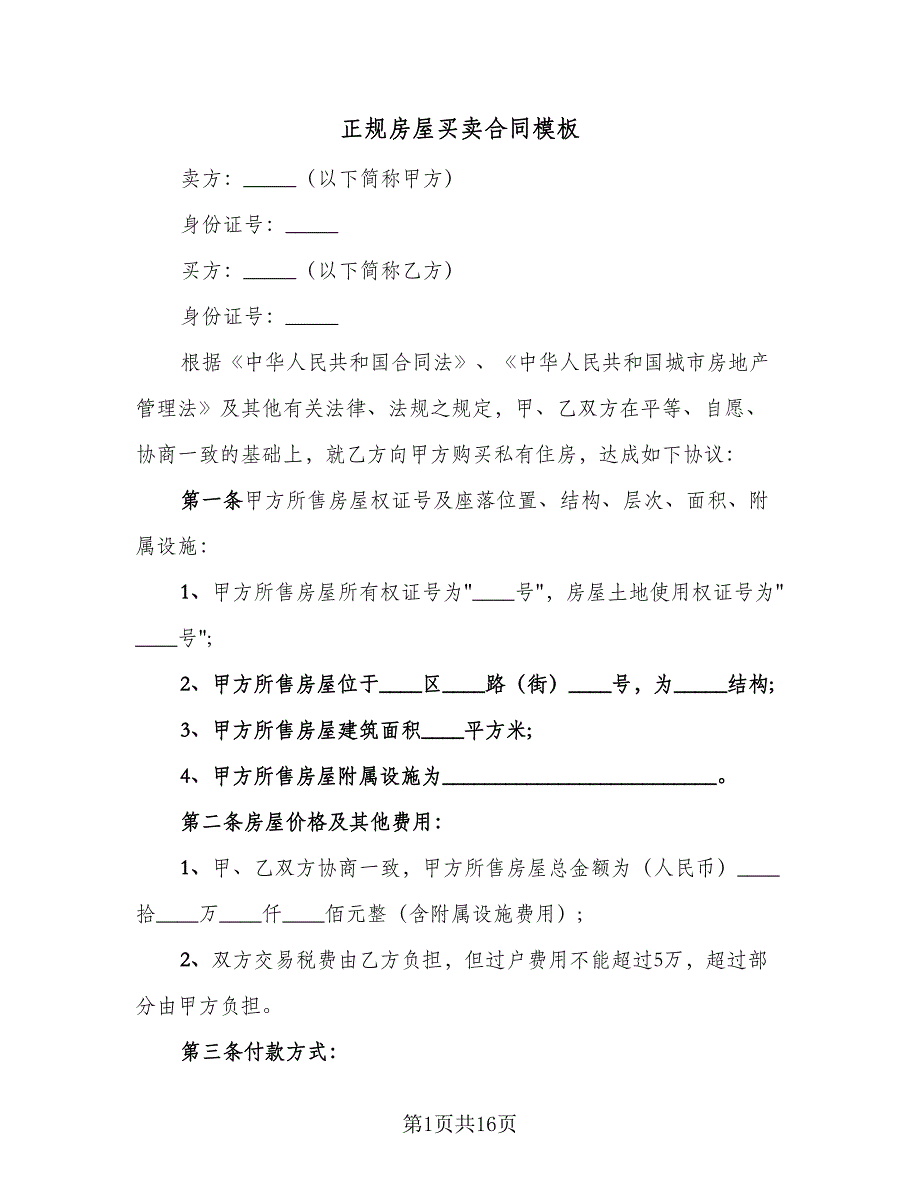 正规房屋买卖合同模板
卖方：_____（以下简称甲方）
身份证号：_____
买方：_____（以下简称乙方）
身份证号：_____
根据《中华人民共和国合同法》、《中华人民共和国城市房地产
管理法》及其他有关法律、法规之规定，甲、乙双方在平等、自愿、
协商一致的基础上，就乙方向甲方购买私有住房，达成如下协议：
第一条甲方所售房屋权证号及座落位置、结构、层次、面积、附
属设施：
1、甲方所售房屋所有权证号为"____号"，房屋土地使用权证号为"
____号";
2、甲方所售房屋位于____区____路（街）____号，为_____结构;
3、甲方所售房屋建筑面积____平方米;
4、甲方所售房屋附属设施为__________________________。
第二条房屋价格及其他费用：
1、甲、乙双方协商一致，甲方所售房屋总金额为（人民币）____
拾____万____仟____佰元整（含附属设施费用）;
2、双方交易税费由乙方负担，但过户费用不能超过5万，超过部
分由甲方负担。
第三条付款方式：
第1页共16页